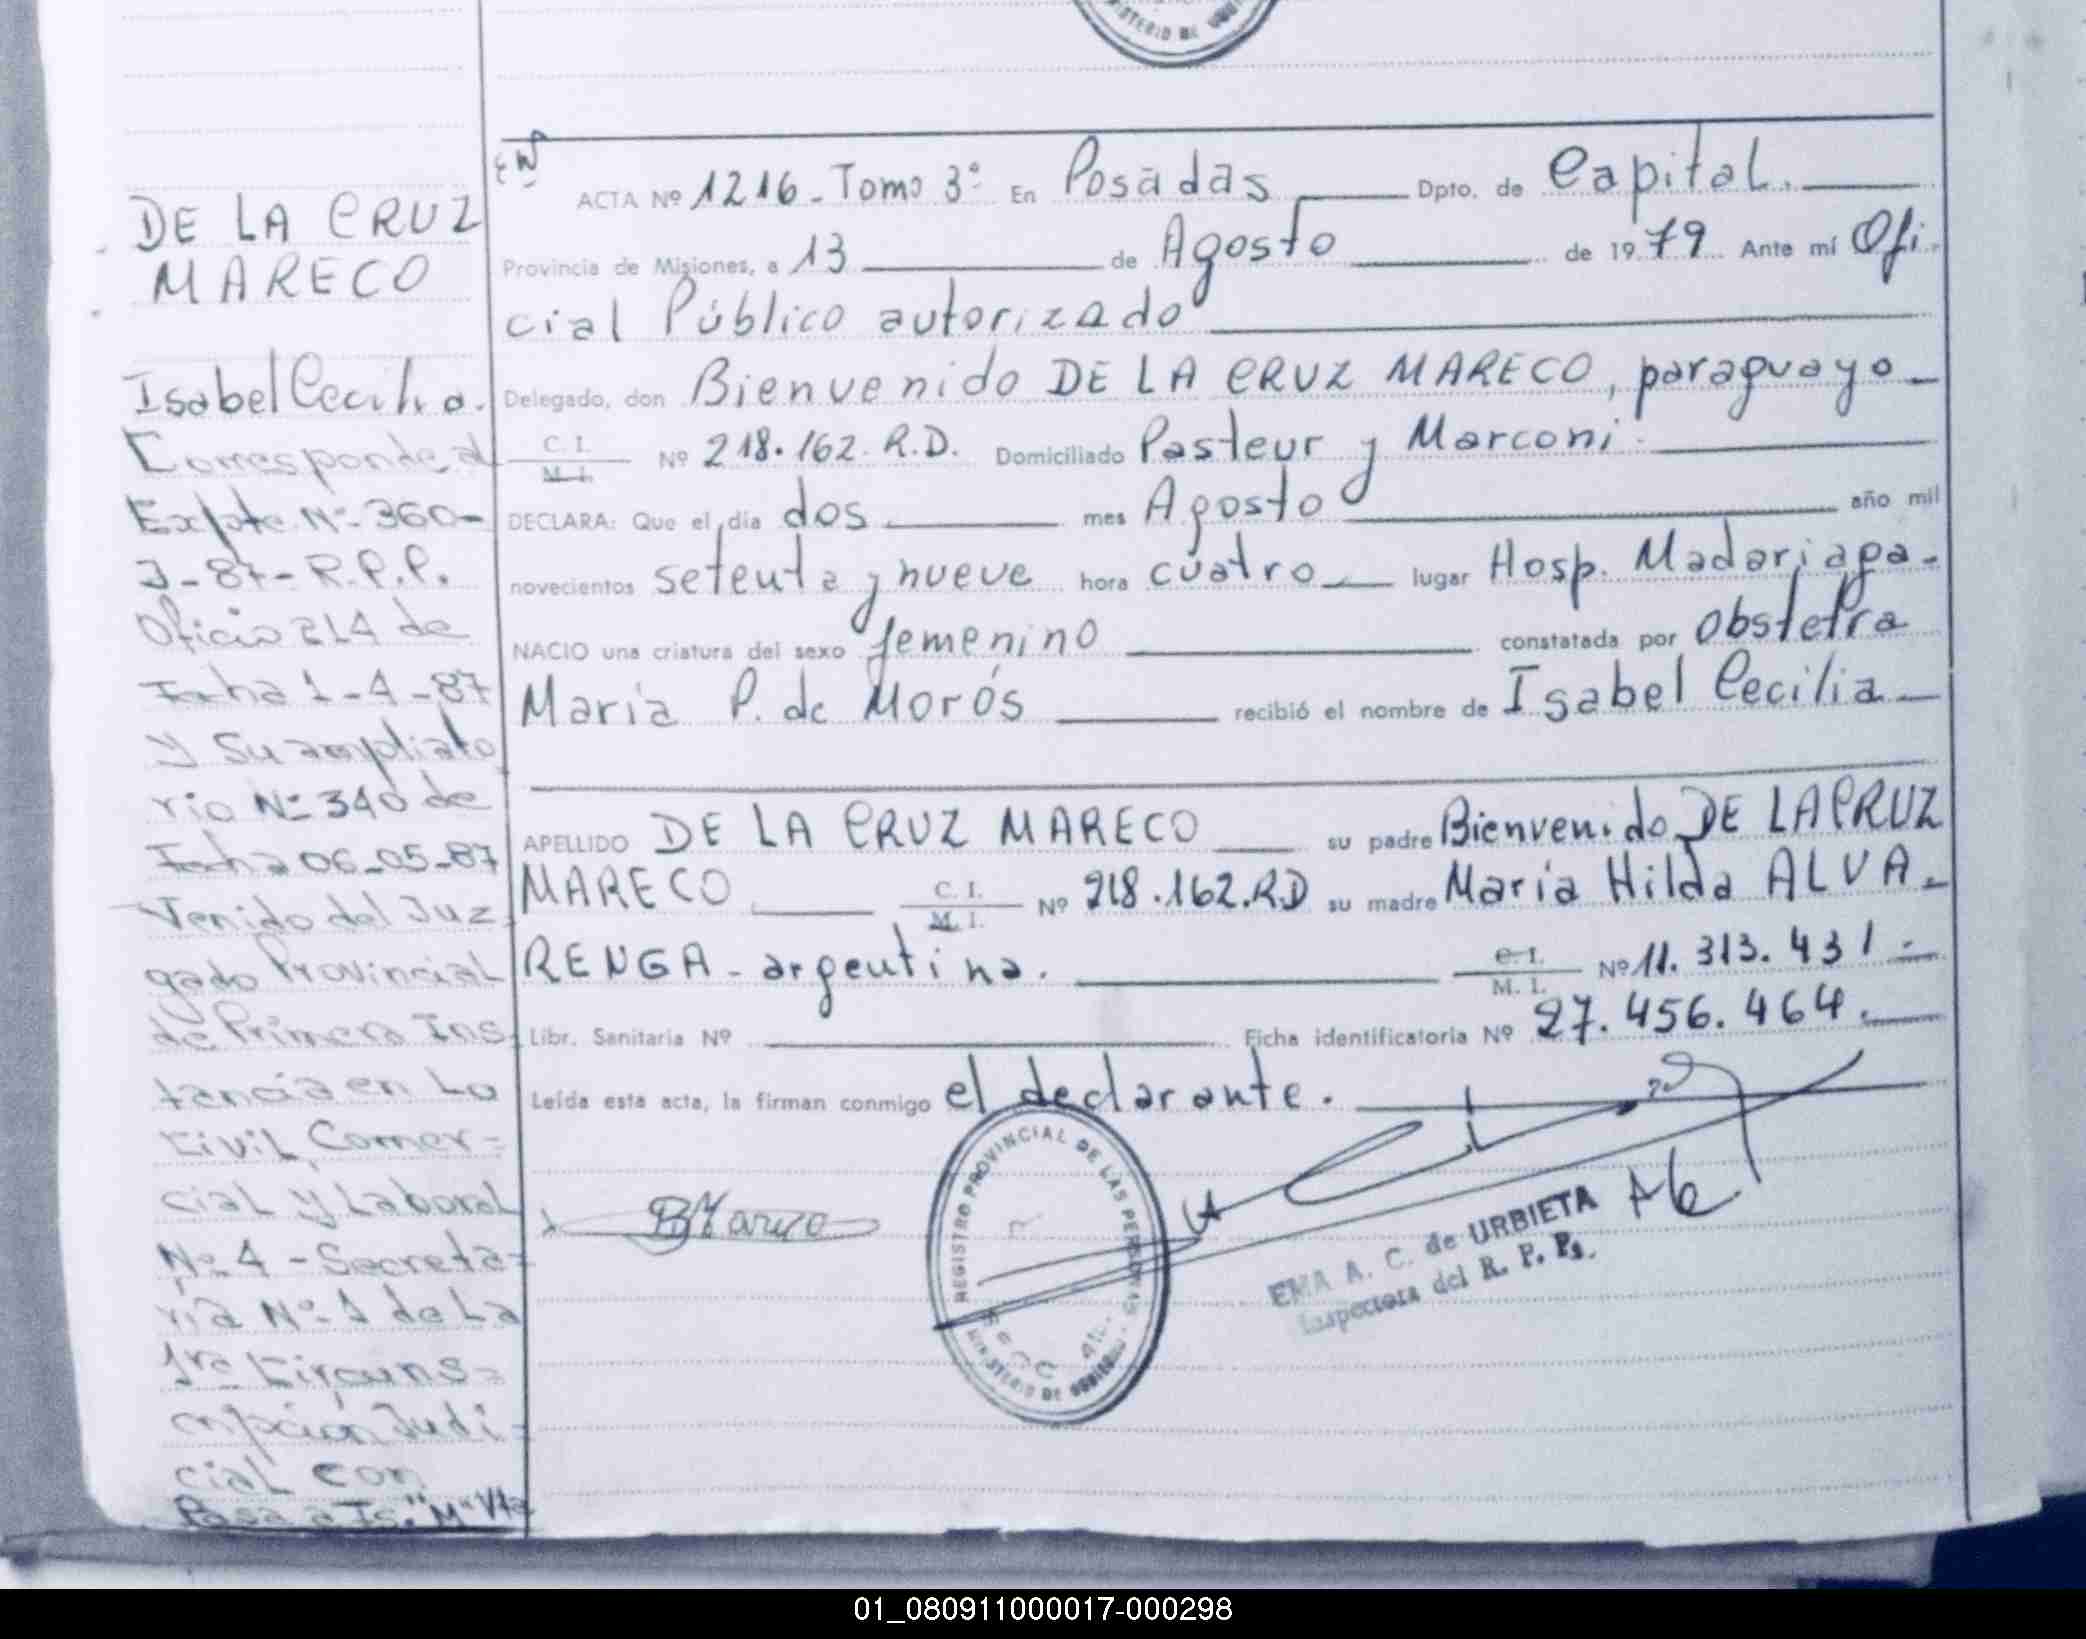 MINISTERIO DE
DE LA CRUZ
MARECO
Isabel Cecilia.
Corresponde al
Expte Nº 360-
J-87-R.P.P.
Oficio 214 de
Fecha 1-4-87
y Su ampliato
rio Nº 340 de
Fecha 06-05-87
Venido del Juz
gado Provincial
de Primera Ins
tancia en Lo
Civil, Comer-
cial y Laboral
Nº 4 - Secreta-
ria Nº 1 de La
1ra Circuns-
cripción Judi-
cial con
Pasa a Fs. "M" Vta
ACTA Nº 1216 - Tomo 3º En Posadas Dpto. de Capital.
Provincia de Misiones, a 13 de Agosto de 1979 Ante mí Ofi-
cial Público autorizado
Delegado, don Bienvenido DE LA CRUZ MARECO, paraguayo
C. I.
M. I. Nº 218.162.R.D. Domiciliado Pasteur y Marconi.
DECLARA: Que el día dos mes Agosto año mil
novecientos setenta y nueve hora cuatro lugar Hosp. Madariaga-
NACIO una criatura del sexo femenino constatada por obstetra
María P. de Morós recibió el nombre de Isabel Cecilia
APELLIDO DE LA CRUZ MARECO su padre Bienvenido DE LA CRUZ
MARECO C. I. Nº 218.162.R.D su madre María Hilda ALVA-
M. I.
RENGA - argentina. C. I. Nº 11.313.431
M. I.
Libr. Sanitaria Nº Ficha identificatoria Nº 27.456.464.
Leída esta acta, la firman conmigo el declarante.
BMareco
REGISTRO PROVINCIAL DE LAS PERSONAS
MINISTERIO DE GOBIERNO
EMA A. C. de URBIETA
Inspectora del R. P. Ps.
01_080911000017-000298